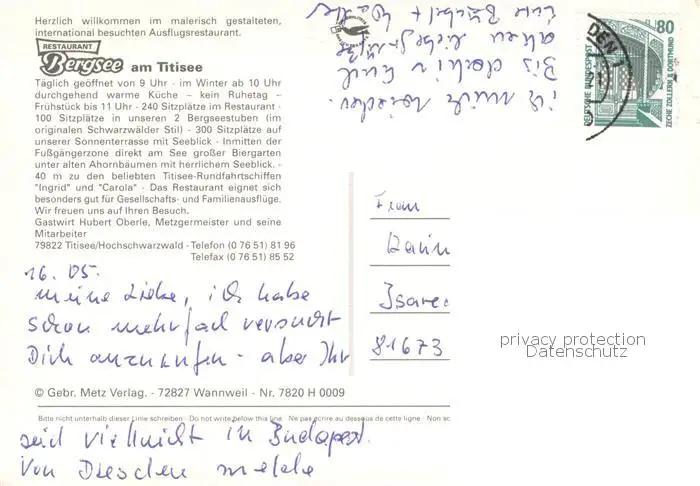 Herzlich willkommen im malerisch gestalteten,
international besuchten Ausflugsrestaurant.
RESTAURANT
Bergsee am Titisee
Täglich geöffnet von 9 Uhr - im Winter ab 10 Uhr
durchgehend warme Küche – kein Ruhetag –
Frühstück bis 11 Uhr - 240 Sitzplätze im Restaurant -
100 Sitzplätze in unseren 2 Bergseestuben (im
originalen Schwarzwälder Stil) - 300 Sitzplätze auf
unserer Sonnenterrasse mit Seeblick - Inmitten der
Fußgängerzone direkt am See großer Biergarten
unter alten Ahornbäumen mit herrlichem Seeblick. -
40 m zu den beliebten Titisee-Rundfahrtschiffen
"Ingrid" und "Carola" - Das Restaurant eignet sich
besonders gut für Gesellschafts- und Familienausflüge.
Wir freuen uns auf Ihren Besuch.
Gastwirt Hubert Oberle, Metzgermeister und seine
Mitarbeiter
79822 Titisee/Hochschwarzwald - Telefon (0 76 51) 81 96
Telefax (0 76 51) 85 52
16. 05.
meine Liebe, ich habe
schon mehrfach versucht
Dich anzurufen - aber Ihr
© Gebr. Metz Verlag. - 72827 Wannweil - Nr. 7820 H 0009
Bitte nicht unterhalb dieser Linie schreiben Do not write below this line Ne pas écrire au dessous de cette ligne Non sc
seid vielleicht in Budapest.
Von Dresden melde
ich mich wieder.
Bis dahin
alles liebe
Eure Bärbel +
80
DEUTSCHE BUNDESPOST
ZECHE ZOLLERN II DORTMUND
DEN
Frau
Karin
Isare
81673
privacy protection
Datenschutz